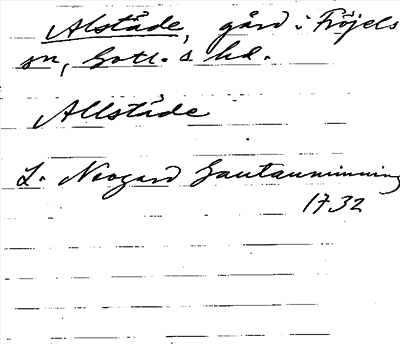 Alstäde, gård i Fröjels
sn, Gotl. s hd.
Allstäde
L. Neogard Gautauminning
1732